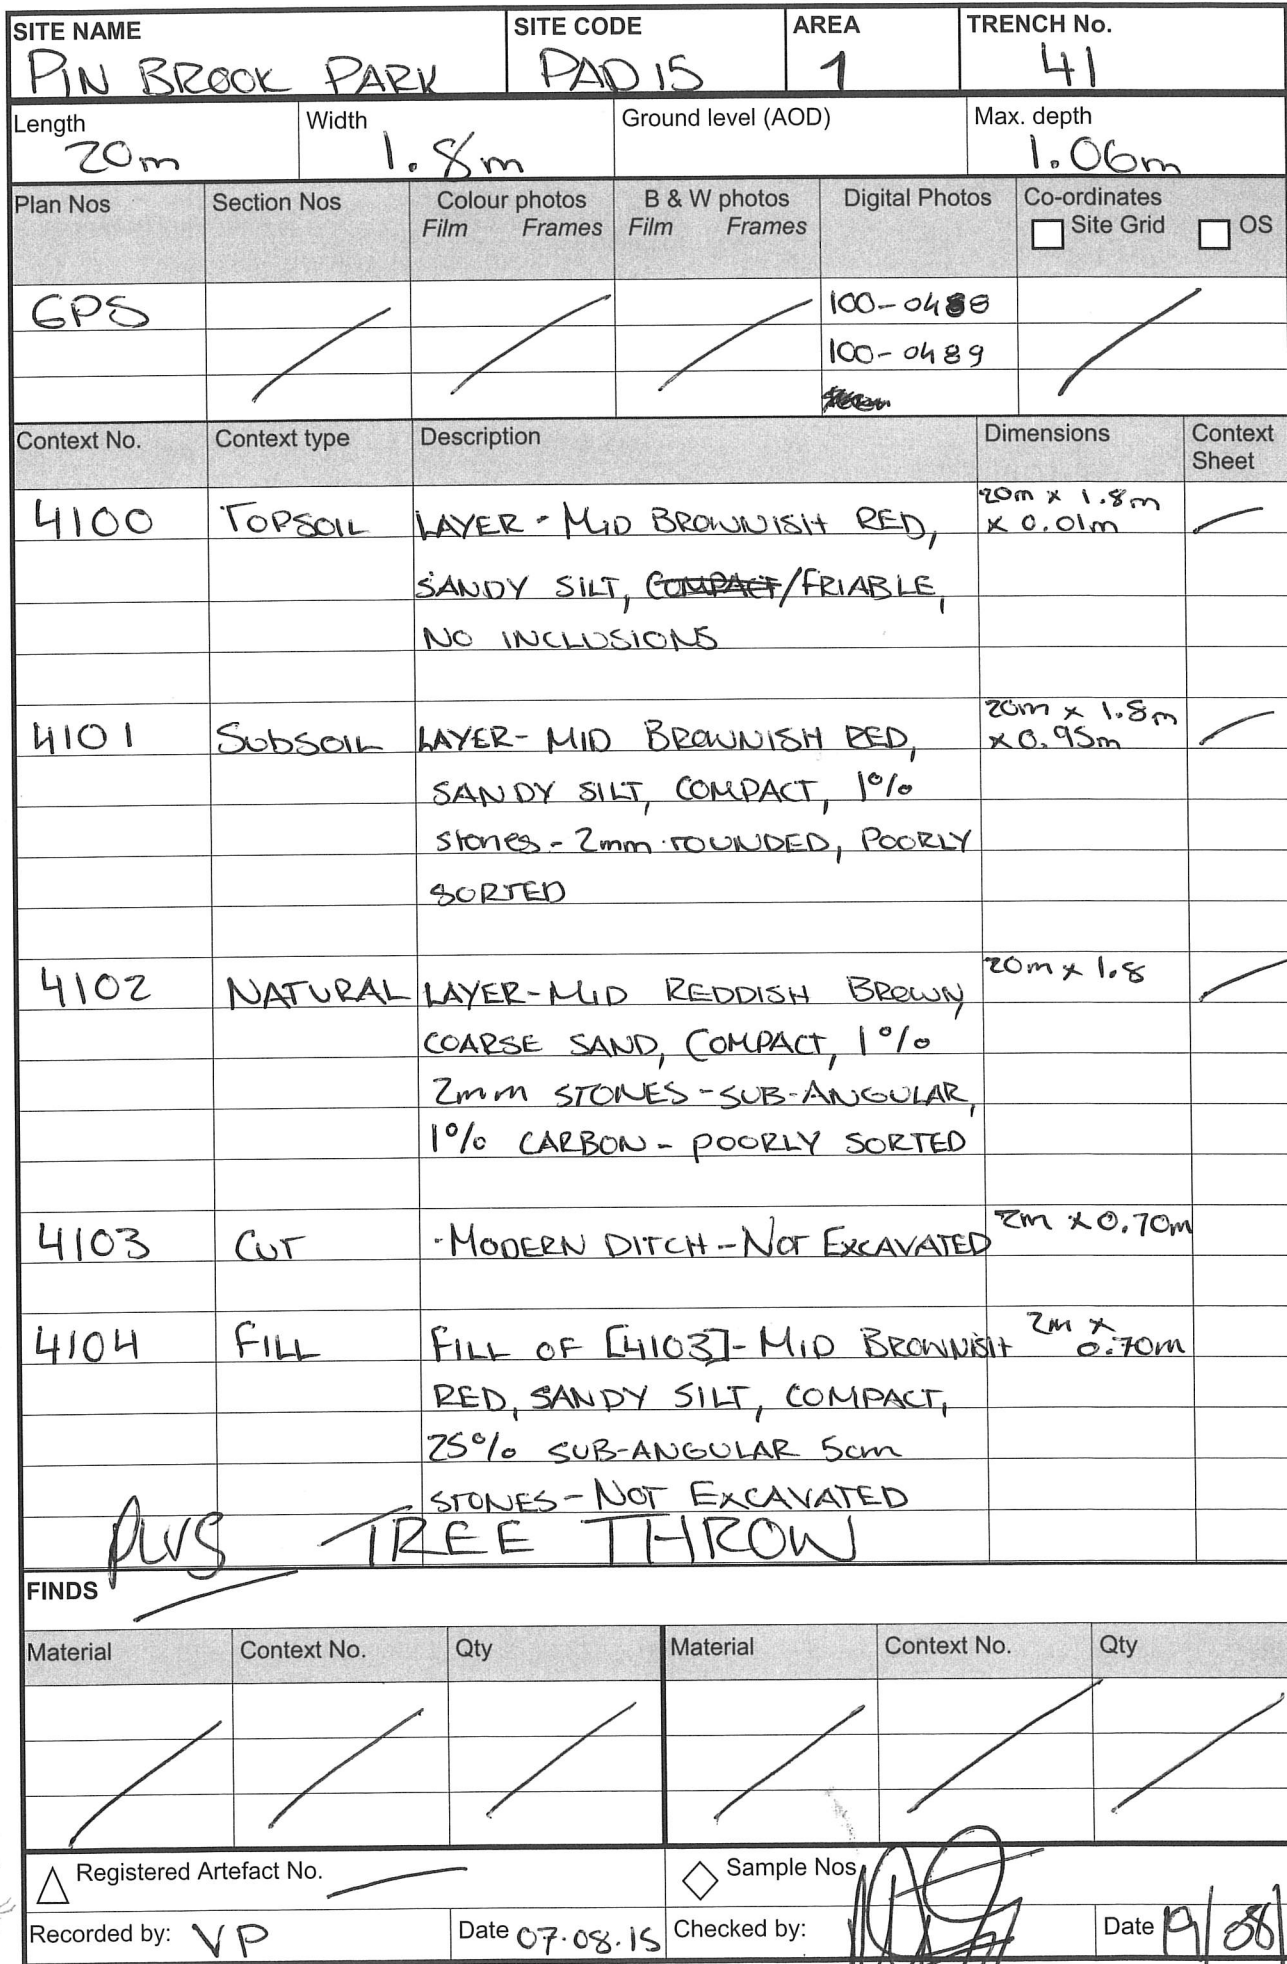 SITE NAME SITE CODE AREA TRENCH No.
PIN BROOK PARK PAD15 1 41
Length Width Ground level (AOD) Max. depth
20m 1.8m 1.06m
Plan Nos Section Nos Colour photos B & W photos Digital Photos Co-ordinates
Film Frames Film Frames Site Grid OS
GPS 100-0488
100-0489
Context No. Context type Description Dimensions Context Sheet
4100 TOPSOIL LAYER - MID BROWNISH RED, 20m x 1.8m x 0.01m
SANDY SILT, COMPACT/FRIABLE,
NO INCLUSIONS
4101 SUBSOIL LAYER - MID BROWNISH RED, 20m x 1.8m x 0.95m
SANDY SILT, COMPACT, 1%
stones - 2mm ROUNDED, POORLY
SORTED
4102 NATURAL LAYER - MID REDDISH BROWN, 20m x 1.8
COARSE SAND, COMPACT, 1%
2mm STONES - SUB-ANGULAR,
1% CARBON - POORLY SORTED
4103 CUT - MODERN DITCH - NOT EXCAVATED 2m x 0.70m
4104 FILL FILL OF [4103] - MID BROWNISH 2m x 0.70m
RED, SANDY SILT, COMPACT,
25% SUB-ANGULAR 5cm
STONES - NOT EXCAVATED
PLUS TREE THROW
FINDS
Material Context No. Qty Material Context No. Qty
Registered Artefact No. Sample Nos
Recorded by: VP Date 07.08.15 Checked by: Date 19/08/